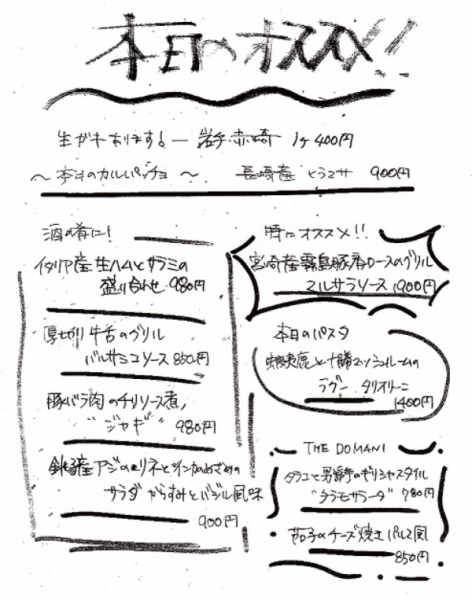 本日のオススメ!!
生ガキあります! — 岩手 赤崎 1ヶ 400円
〜 本日のカルパッチョ 〜 長崎産 ヒラマサ 900円
酒の肴に!
イタリア産 生ハムとサラミの
盛り合わせ 980円
厚切り牛舌のグリル
バルサミコソース 850円
豚バラ肉のチリソース煮
"ジャギ" 980円
銚子産アジのマリネと
サラダ からすみとバジル風味
900円
特にオススメ!!
宮崎産霧島豚肩ロースのグリル
マルサラソース 1900円
本日のパスタ
蝦夷鹿と十勝マッシュルームの
ラグー タリオリーニ
1400円
THE DOMANI
タラコと男爵芋のギリシャスタイル
"タラモサラータ" 780円
茄子のチーズ焼き パルマ風
850円